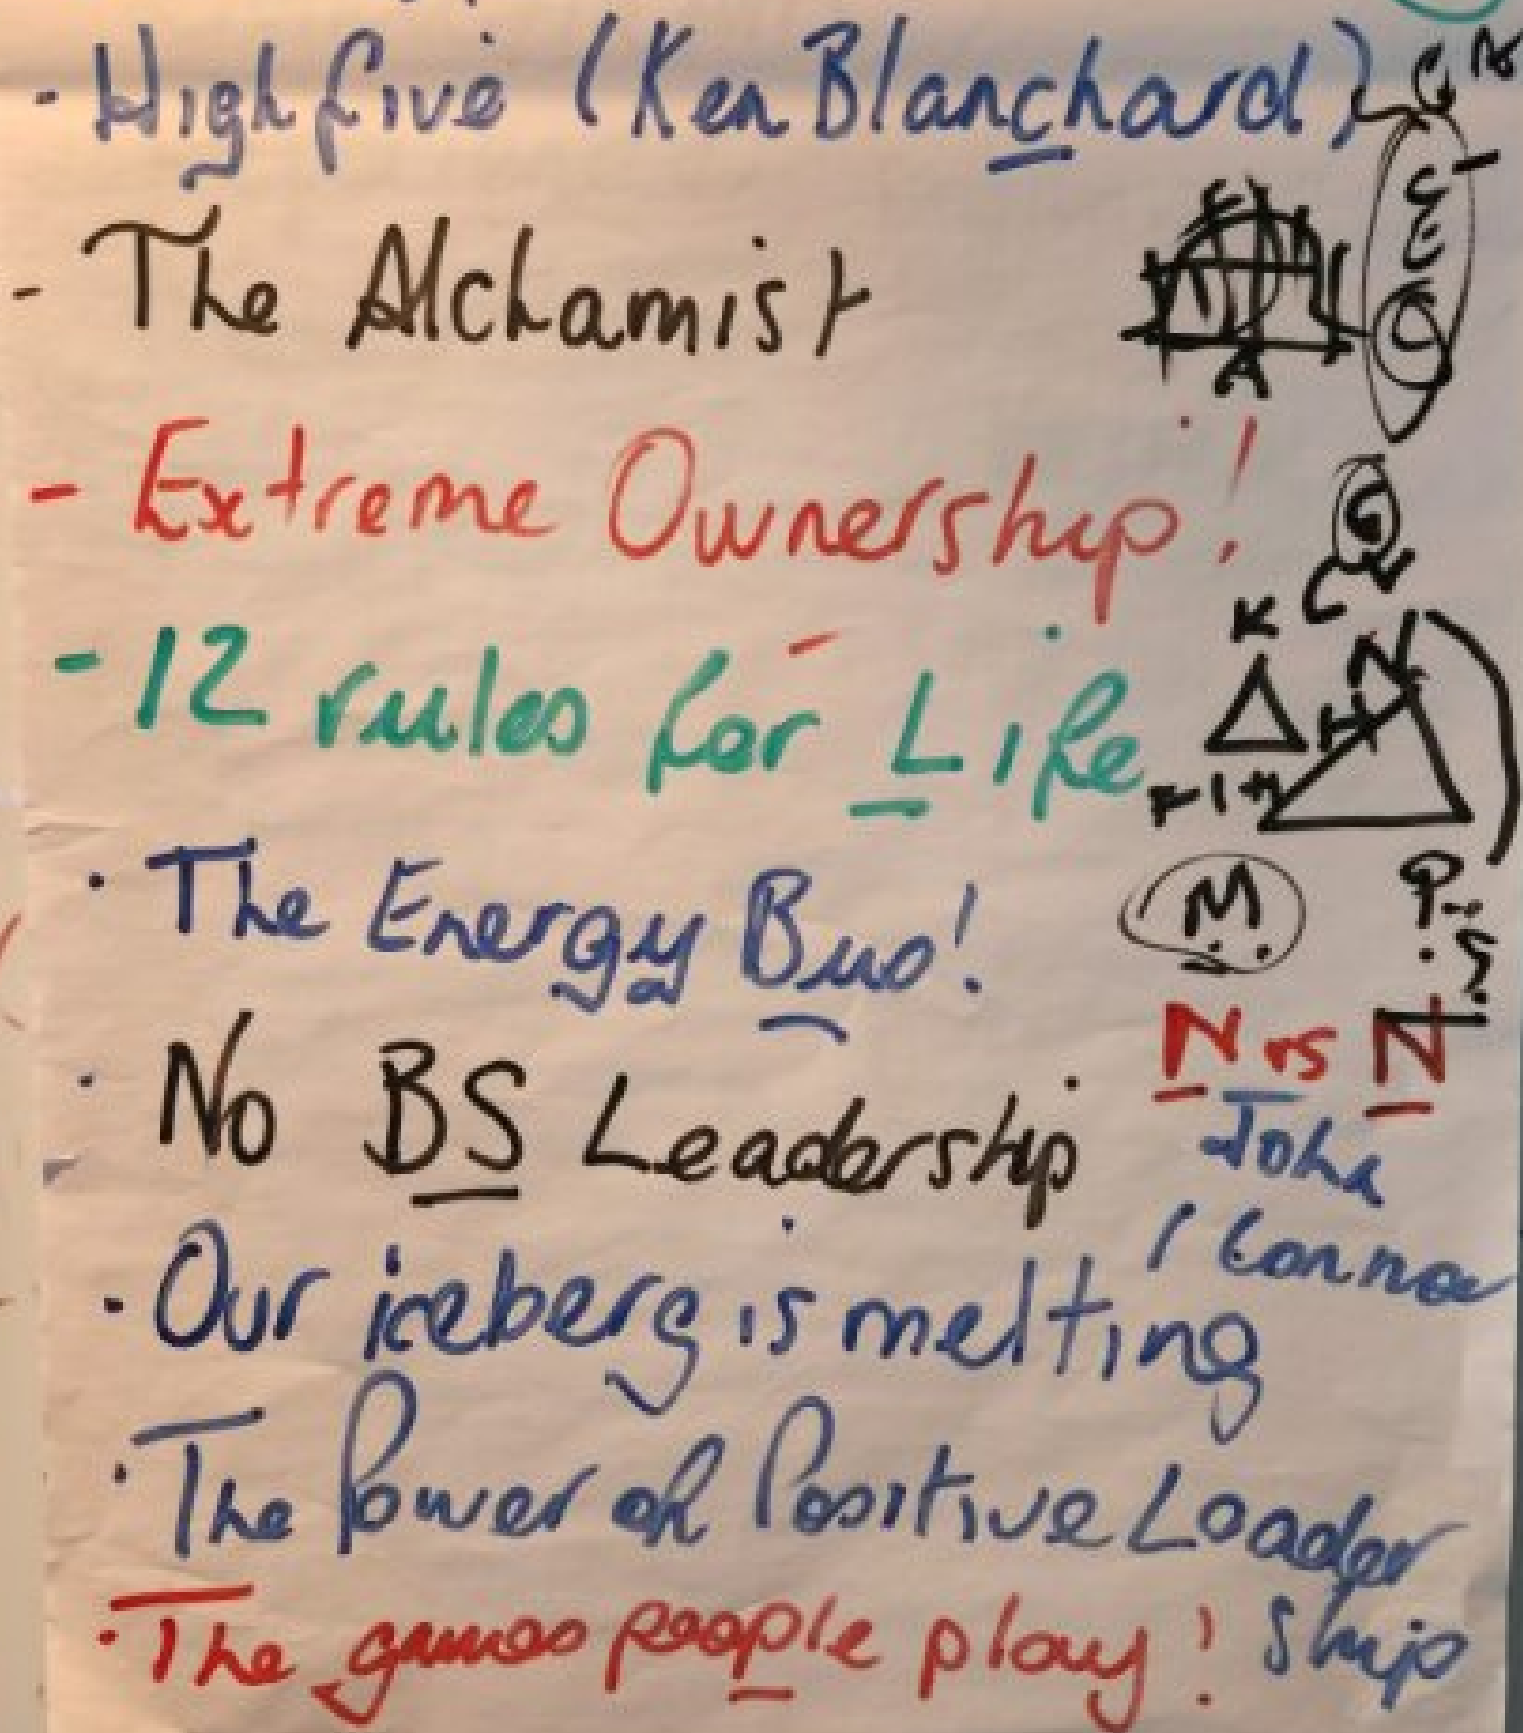 - High five (Ken Blanchard)
- The Alchamist
- Extreme Ownership!
- 12 rules for Life
K
N
H
M
P
· The Energy Bus!
N vs N
· No BS Leadership
John
Connor
· Our iceberg is melting
· The Power of Positive Leader
ship
· The games people play!